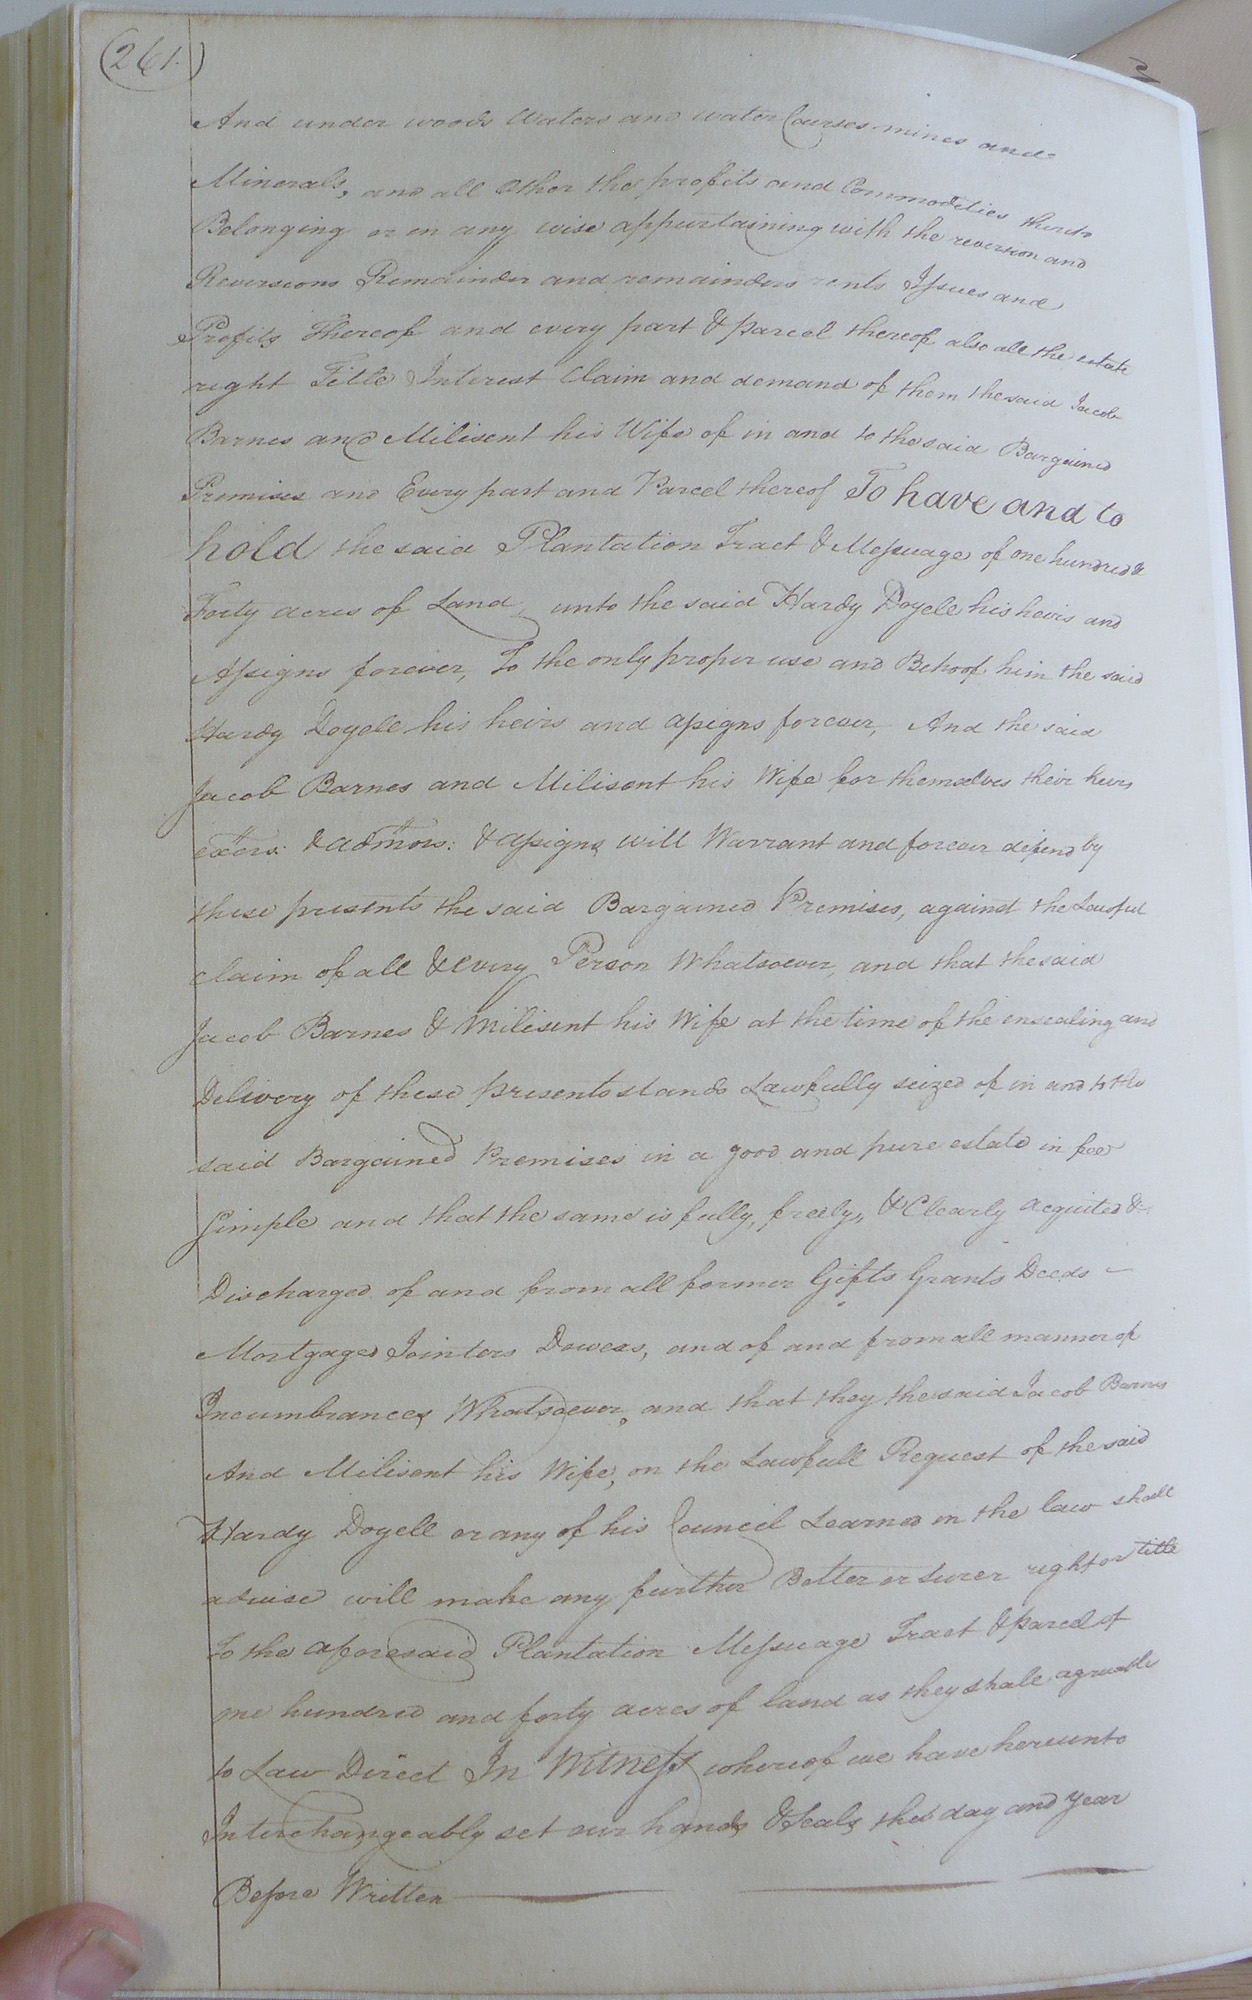 (261.)
And under woods Waters and water Courses mines and
Minerals, and all other the profits and Commodities thereto
Belonging or in any wise appurtaining with the reversion and
Reversions Remainder and remainders rents Issues and
Profits thereof and every part & parcel thereof also all the estate
right Title Interest Claim and demand of them the said Jacob
Barnes and Milisent his Wife of in and to the said Bargained
Premises and Every part and Parcel thereof To have and to
hold the said Plantation Tract & Messuage of one hundred &
Forty acres of Land, unto the said Hardy Doyell his heirs and
Assigns forever, To the only proper use and Behoof him the said
Hardy Doyell his heirs and assigns forever, And the said
Jacob Barnes and Milisent his Wife for themselves their heirs
exors: & admors: & assigns will Warrant and forever defend by
these presents the said Bargained Premises, against the Lawful
claim of all & every Person Whatsoever, and that the said
Jacob Barnes & Milisent his Wife at the time of the ensealing and
Delivery of these presents stands Lawfully seized of in and to the
said Bargained Premises in a good and pure estate in fee
Simple and that the same is fully, freely, & Clearly acquited &
Discharged of and from all former Gifts Grants Deeds —
Mortgages Jointers Dowers, and of and from all manner of
Incumbrances Whatsoever, and that they the said Jacob Barnes
And Milisent his Wife, on the Lawfull Request of the said
Hardy Doyell or any of his Council Learned in the law shall
advise will make any further Better or surer right or title
To the aforesaid Plantation Messuage Tract & parcel of
one hundred and forty acres of land as they shall agreeable
to Law Direct In Witness whereof we have hereunto
Interchangeably set our hands & Seals the day and year
Before Written